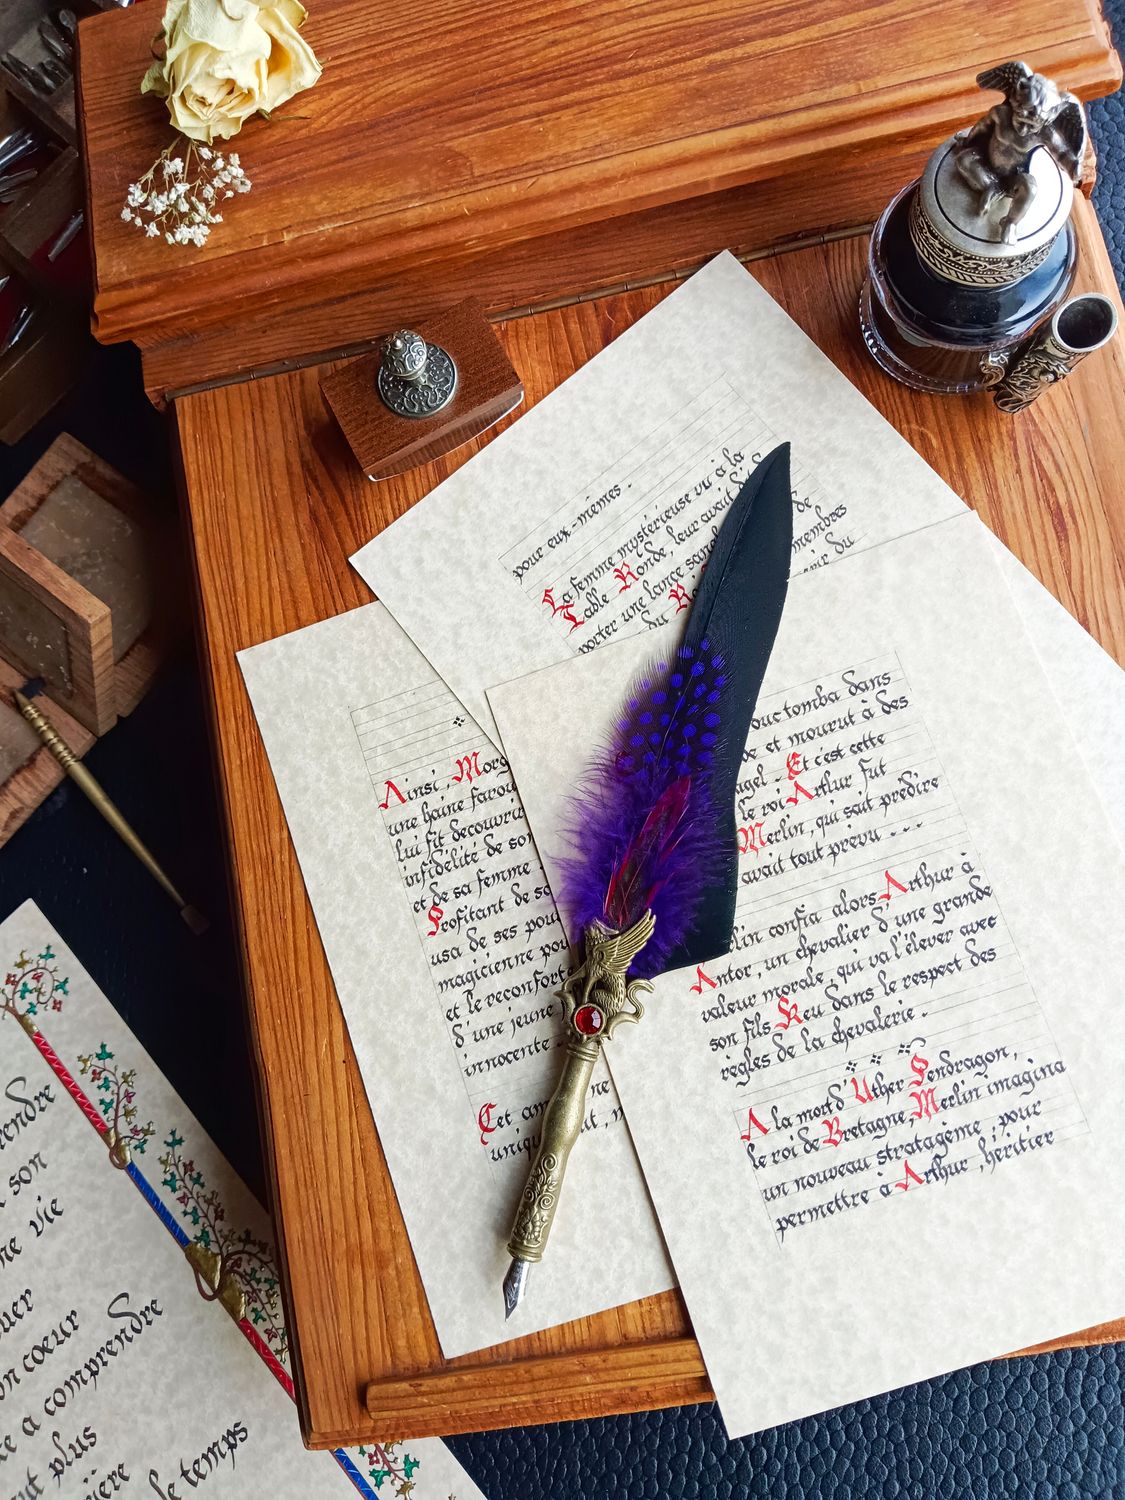 pour eux-mêmes.
La femme mystérieuse vu à la
Table Ronde, leur avait
porter une lance
du
de
membres
du
Ainsi, Morg
une haine farou
lui fit découvrir
infidélité de son
et de sa femme
Profitant de so
usa de ses pou
magicienne pou
et le reconforte
d'une jeune
innocente.
Cet am ne
uniqu
duc tomba dans
de et mourut à des
agel. Et c'est cette
le roi Arthur fut
Merlin, qui sait prédire
avait tout prévu ...
lin confia alors Arthur à
Antor, un chevalier d'une grande
valeur morale, qui va l'élever avec
son fils Keu dans le respect des
règles de la chevalerie.
A la mort d'Uther Pendragon,
le roi de Bretagne, Merlin imagina
un nouveau stratagème, pour
permettre à Arthur, héritier
rendre
son
ne vie
uer
on coeur
re a comprendre
nt plus
ière
le temps